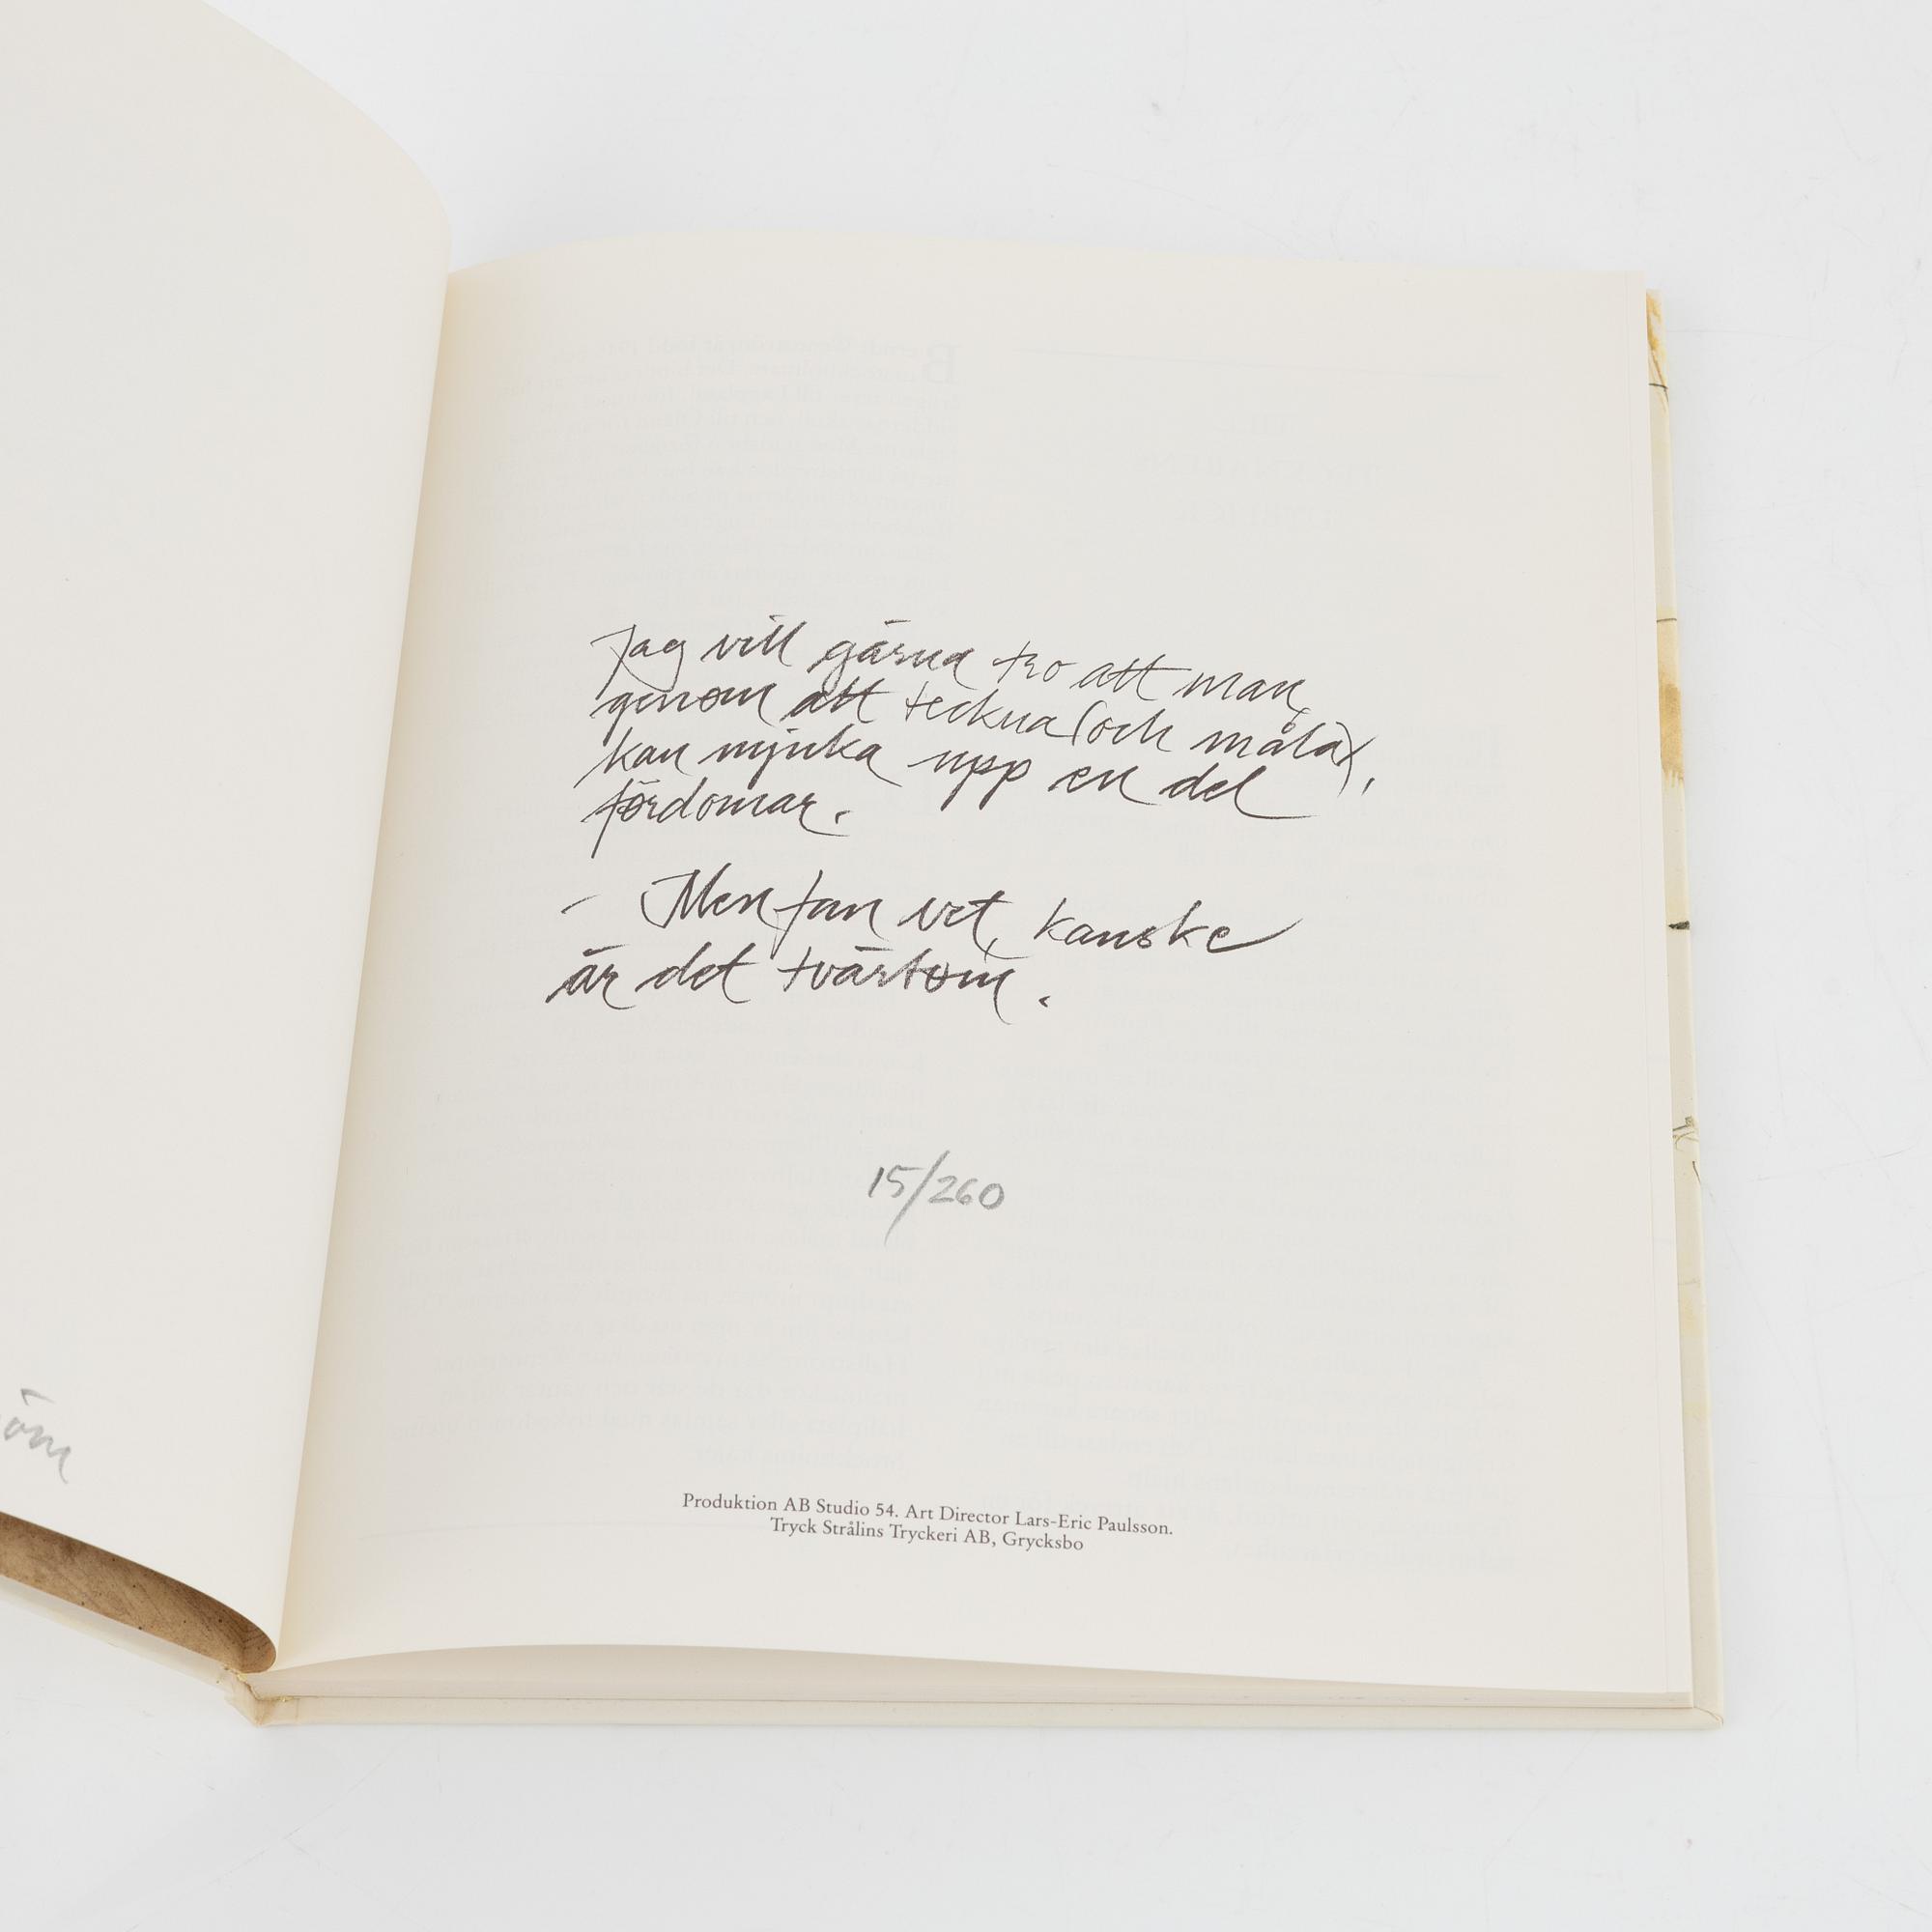 Jag vill gärna tro att man,
genom att teckna (och måla),
kan mjuka upp en del
fördomar.
- Men fan vet, kanske
är det tvärtom.
15/260
Produktion AB Studio 54. Art Director Lars-Eric Paulsson.
Tryck Strålins Tryckeri AB, Grycksbo